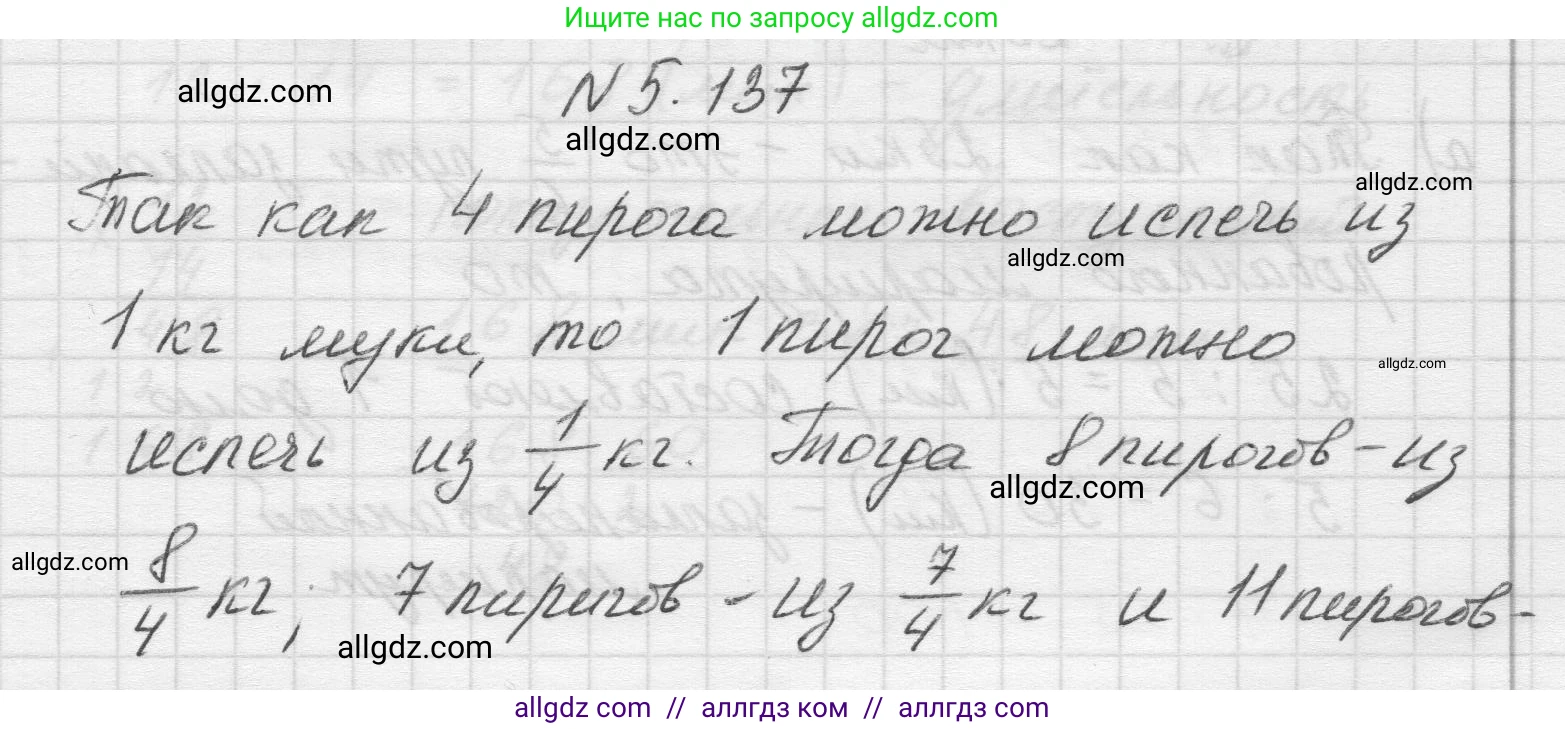 Ищите нас по запросу allgdz.com
allgdz.com
N 5.137
allgdz.com
allgdz.com
Так как 4 пирога можно испечь из
allgdz.com
1 кг муки, то 1 пирог можно
allgdz.com
испечь из 1/4 кг. Тогда 8 пирогов - из
allgdz.com
allgdz.com
8/4 кг; 7 пирогов - из 7/4 кг и 11 пирогов -
allgdz.com
allgdz com // аллгдз ком // аллгдз com